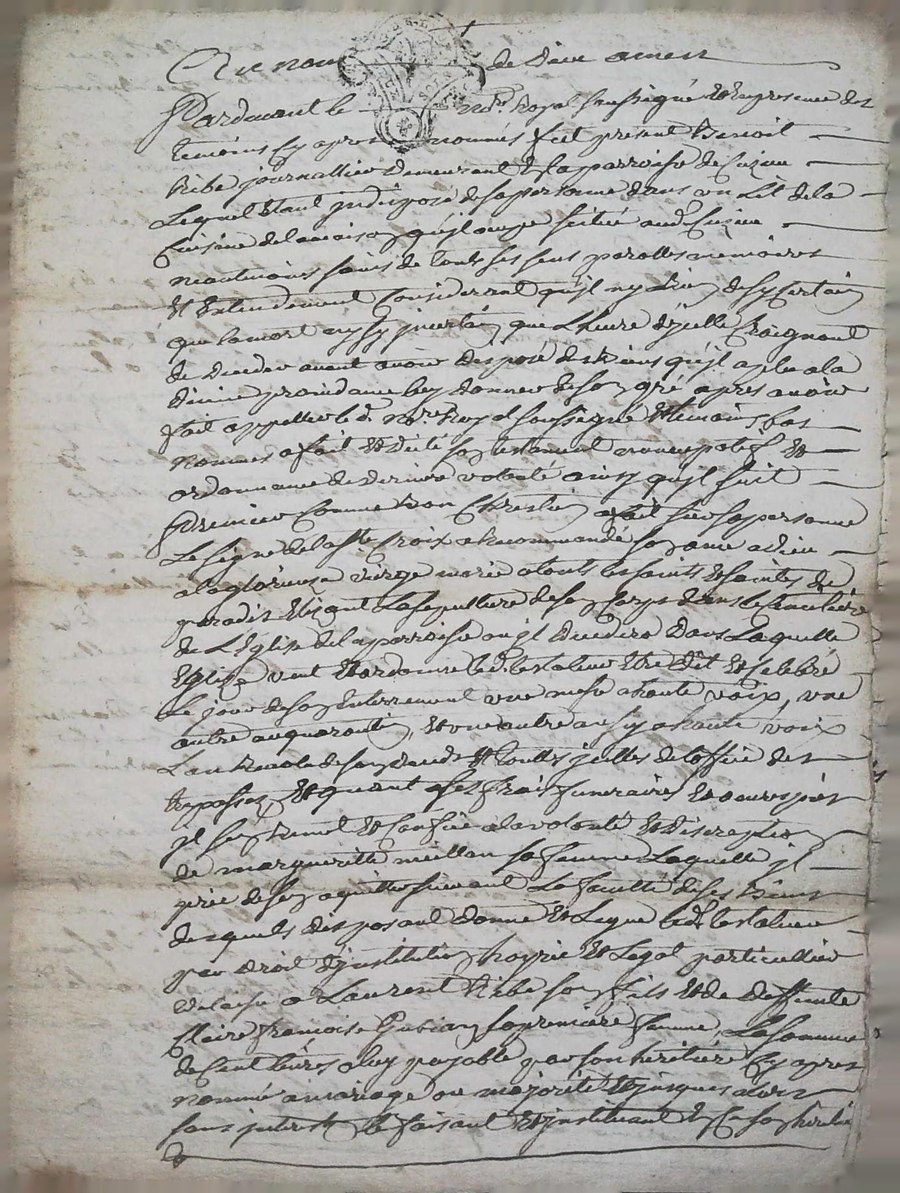 Au nom de Dieu amen
Pardevant le no.re Royal soussigné Et En presence des
temoins cy apres nommés fut present Benoit
Ribe journallier demeurant En la parroisse de Cuzieu
Lequel Etant jndisposé de sa personne dans un Lit de la
Cuisine de la maison qu'jl occupe scitué aud. Cuzieu
neantmoins sain de touts ses sens parolles memoires
Et Entendement Considerant qu'jl ny a rien de sy certain
que la mort ny sy jncertain que L'heure d'jcelle Craignant
de deceder avant avoir disposé des Biens qu'jl a plu a la
divine providance luy donner de son gré apres avoir
fait appeller le d. no.re Royal soussigné Et temoins bas
nommés a fait Et dicté son testament nuncupatif Et
ordonnance de derniere volonté ainsy qu'jl suit
Premier Comme bon Chrestien a fait sur sa personne
Le signe de la ste Croix a Recommandé son ame a dieu
a la glorieuse vierge marie a touts les saints Et saintes de
paradis Elisant La sepulture de son Corps dans le Cimetiere
de L'Eglise de la parroisse ou jl decedera Dans Laquelle
Eglise veut Et ordonne led. testateur Etre dit Et Celebré
Le jour de son Enterrement une messe a haute voix, une
autre au quarantin, Et une autre aussy a haute voix
L'an Revolu de son deceds Et touttes jcelles de L'office des
trepassez, Et quant a ses frais funeraires Et oeuvres pies
jl s'en Remet Et Confie a la volonté Et discretion
de margueritte meillan sa femme Laquelle jl
prie de s'en aquitter suivant La faculté de ses Biens
desquels disposant donne Et Legue led. testateur
par droit d'jnstitution hoyrie Et Legat particullier
delaisse a Laurent Ribe son fils Et de deffunte
Claire françoise sa premiere femme, La somme
de Cent livres a luy payable par son heritiere Cy apres
nommée a mariage ou majorité Et jusques alors
sans jnterest Le faisant Et jnstituant En Ce son heritier